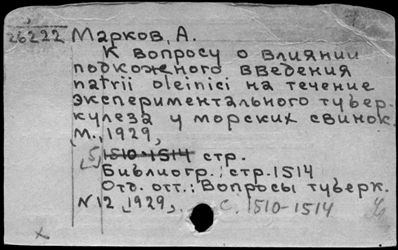 26222 Марков, А.
К вопросу о влиянии
подкожного введения
natrii oleinici на течение
экспериментального тубер-
кулеза у морских свинок.
М., 1929,
[5] 1510-1514 стр.
Библиогр.: стр. 1514
Отд. отт.: Вопросы туберк.
N12, 1929, с. 1510-1514